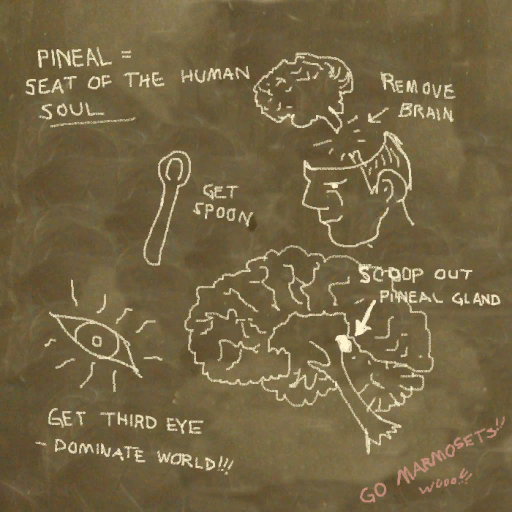 PINEAL =
SEAT OF THE HUMAN
SOUL
REMOVE
BRAIN
GET
SPOON
SCOOP OUT
PINEAL GLAND
GET THIRD EYE
- DOMINATE WORLD!!!
GO MARMOSETS!!
WOOO!!